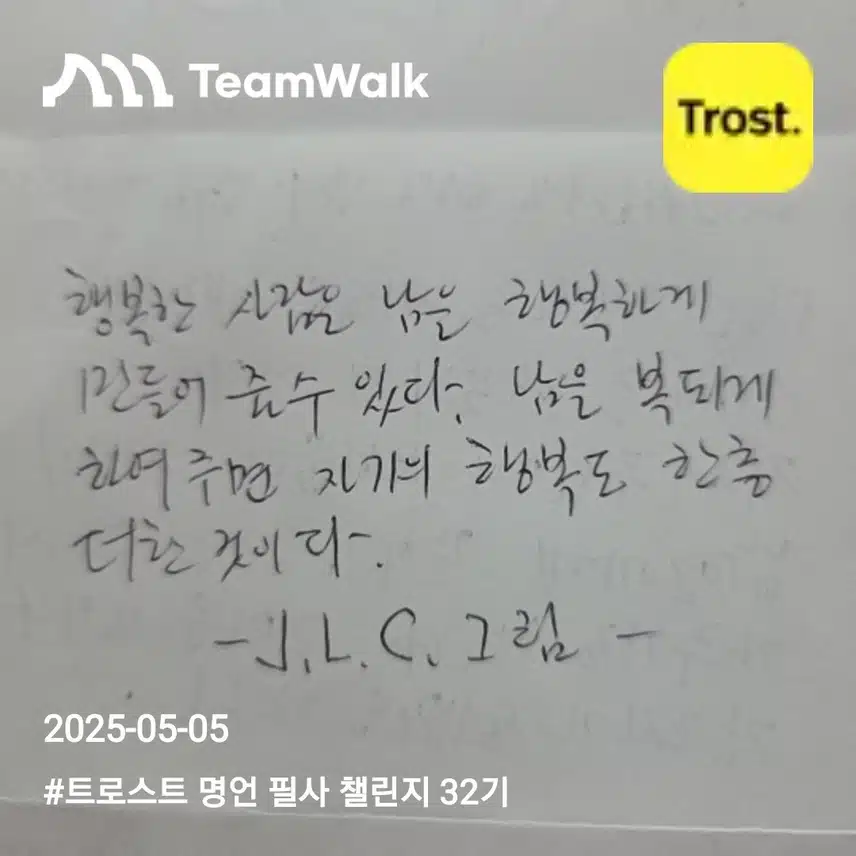 TeamWalk
Trost.
행복한 사람은 남을 행복하게
만들어 줄 수 있다. 남을 복되게
하여 주면 자기의 행복도 한층
더한 것이다.
- J.L.C. 그림 -
2025-05-05
#트로스트 명언 필사 챌린지 32기